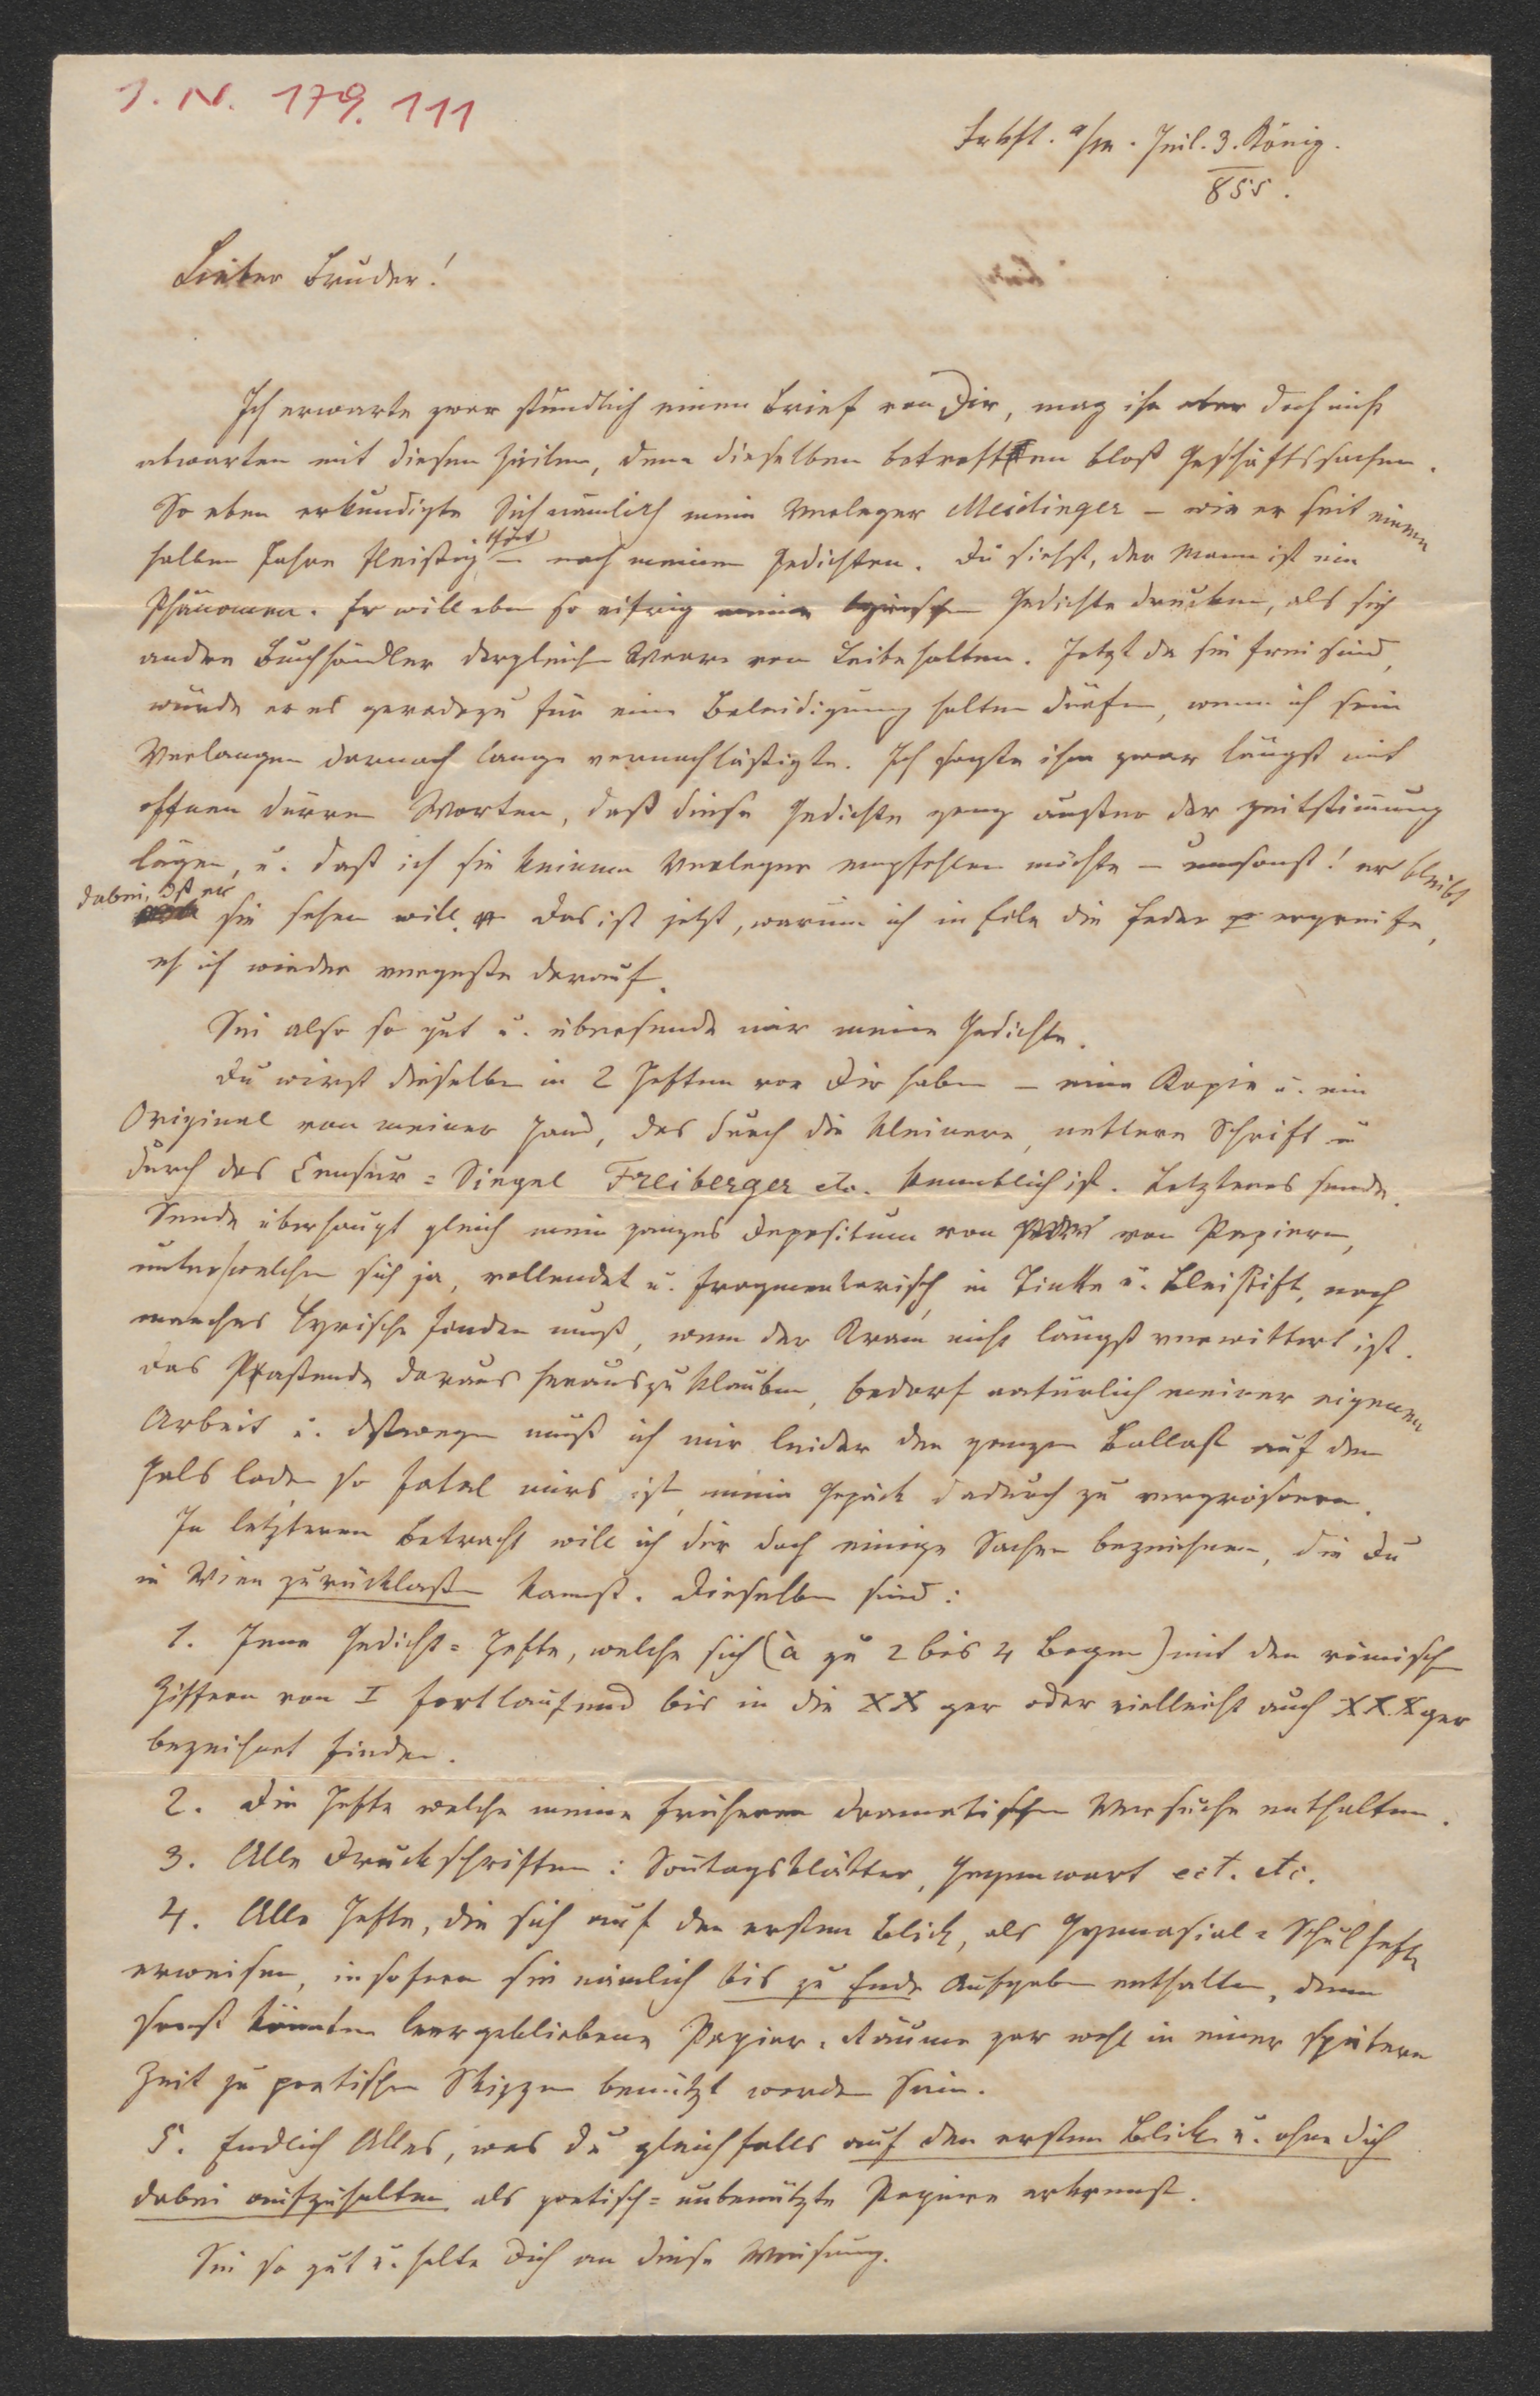 I. N. 179.111
Frkft. a/m. Heil. 3. König.
855.
Lieber Bruder!
Ich erwarte zwar stündlich einen Brief von Dir, mag ihn aber doch nicht
abwarten mit diesen Zeilen, denn dieselben betreffen bloß Geschäftssachen.
So eben erkundigte sich nämlich mein Verleger Meidinger – wie er seit einem
halben Jahre fleißig thut – nach meinen Gedichten. Du siehst, der Mann ist ein
Phänomen. Er will eben so eifrig meine lyrischen Gedichte drucken, als sich
andre Buchhändler dergleichen Waare vom Leibe halten. Jetzt da sie frei sind,
würde er es geradezu für eine Beleidigung halten dürfen, wenn ich sein
Verlangen darnach lange vernachläßigte. Ich sagte ihm zwar längst mit
offnen dürren Worten, daß diese Gedichte ganz außer der Zeitstimmung
lägen, u. daß ich sie keinem Verleger empfehlen möchte – umsonst! er bleibt
dabei, daß er sie sehen will. Das ist jetzt, warum ich in Eile die Feder ergreife,
eh ich wieder vergesse darauf.
Sei also so gut u. übersende mir meine Gedichte.
Du wirst dieselben in 2 Heften vor Dir haben – eine Kopie u. ein
Original von meiner Hand, das durch die kleinere, nettere Schrift u
durch das Censur-Siegel Freiberger etc. kenntlich ist. Letzteres sende.
Sende überhaupt gleich mein ganzes Depositum von von Papieren,
unter welchen sich ja, vollendet u. fragmentarisch, in Tinkte u. Bleistift, noch
manches Lyrische finden muß, wenn der Kram nicht längst verwittert ist.
Das Passende daraus herauszuklauben, bedarf natürlich meiner eigenen
Arbeit u. deßwegen muß ich mir leider den ganzen Ballast auf den
Hals laden so fatal mirs ist, mein Gepäck dadurch zu vergrössern.
In letzterem Betracht will ich dir doch einige Sachen bezeichnen, die Du
in Wien zurücklaßen kannst. Dieselben sind:
1. Jene Gedicht-Hefte, welche sich (à zu 2 bis 4 Bogen) mit den römischen
Ziffern von I fortlaufend bis in die XX ger oder vielleicht auch XXX ger
bezeichnet finden.
2. Die Hefte welche meine früheren dramatischen Versuche enthalten.
3. Alle Druckschriften: Sontagsblätter, Gegenwart ect. etc.
4. Alle Hefte, die sich auf den ersten Blick, als Gymnasial-Schulhefte
erweisen, insofern sie nämlich bis zu Ende Aufgaben enthalten, denn
sonst könnten leergebliebene Papier-Räume gar wohl in einer spätern
Zeit zu poetischen Skizzen benützt worden sein.
5. Endlich Alles, was Du gleichfalls auf den ersten Blick u. ohne Dich
dabei aufzuhalten als poetisch-unbenützte Papiere erkennst.
Sei so gut u. halte Dich an diese Weisung.